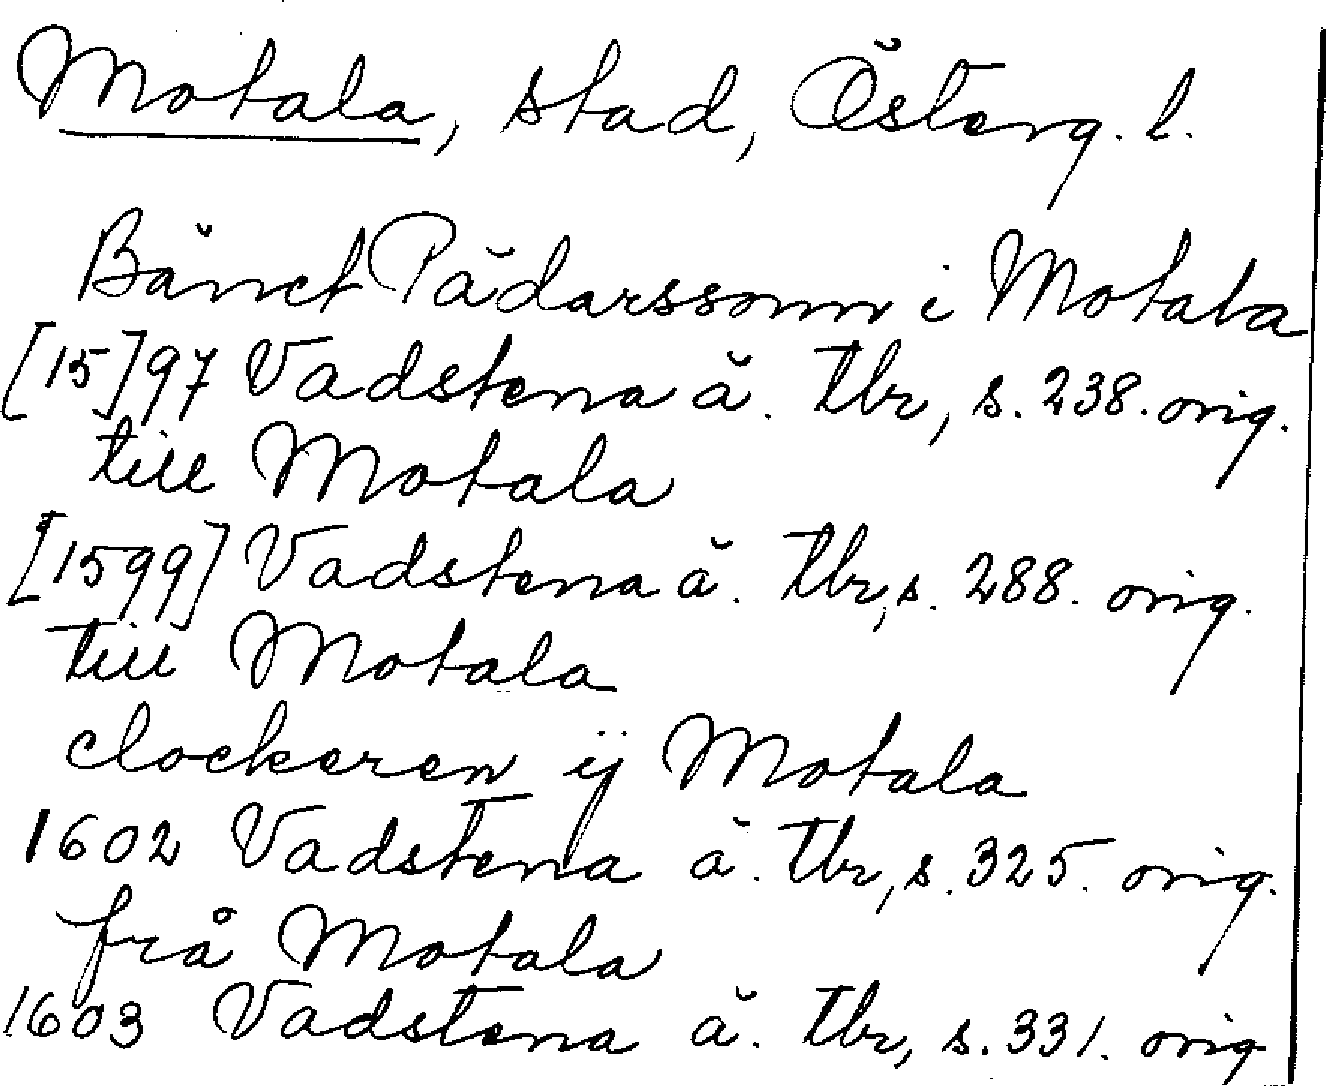 Motala, stad, Österg. l.
Bänct Pädarssonn i Motala
[15]97 Vadstena ä. tbr, s. 238. orig.
till Motala
[1599] Vadstena ä. tbr, s. 288. orig.
till Motala
clockeren ÿ Motala
1602 Vadstena ä. tbr, s. 325. orig.
frå Motala
1603 Vadstena ä. tbr, s. 331. orig